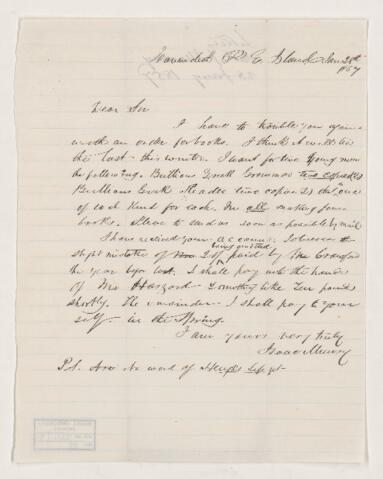 Cavendish P. E. Island Jan 28th
1867
Dear Sir
I have to trouble you again
with an order for books. I think it will be
the last this winter. I want for two young men
the following. Bullions Small Grammar two copies
Bullions Greek Reader two copies that's one
of each kind for each. In all making four
books. Please to send as soon as possible by mail
I have received your account. I observe a
slight mistake of 2 being omitted paid by Mr Crawford
the year before last. I shall pay into the hands
of Mr Haszard Something like Ten pounds
shortly. The remainder I shall pay to your
self in the Spring.
I am yours very truly
Isaac Murray
P.S. Are no word of